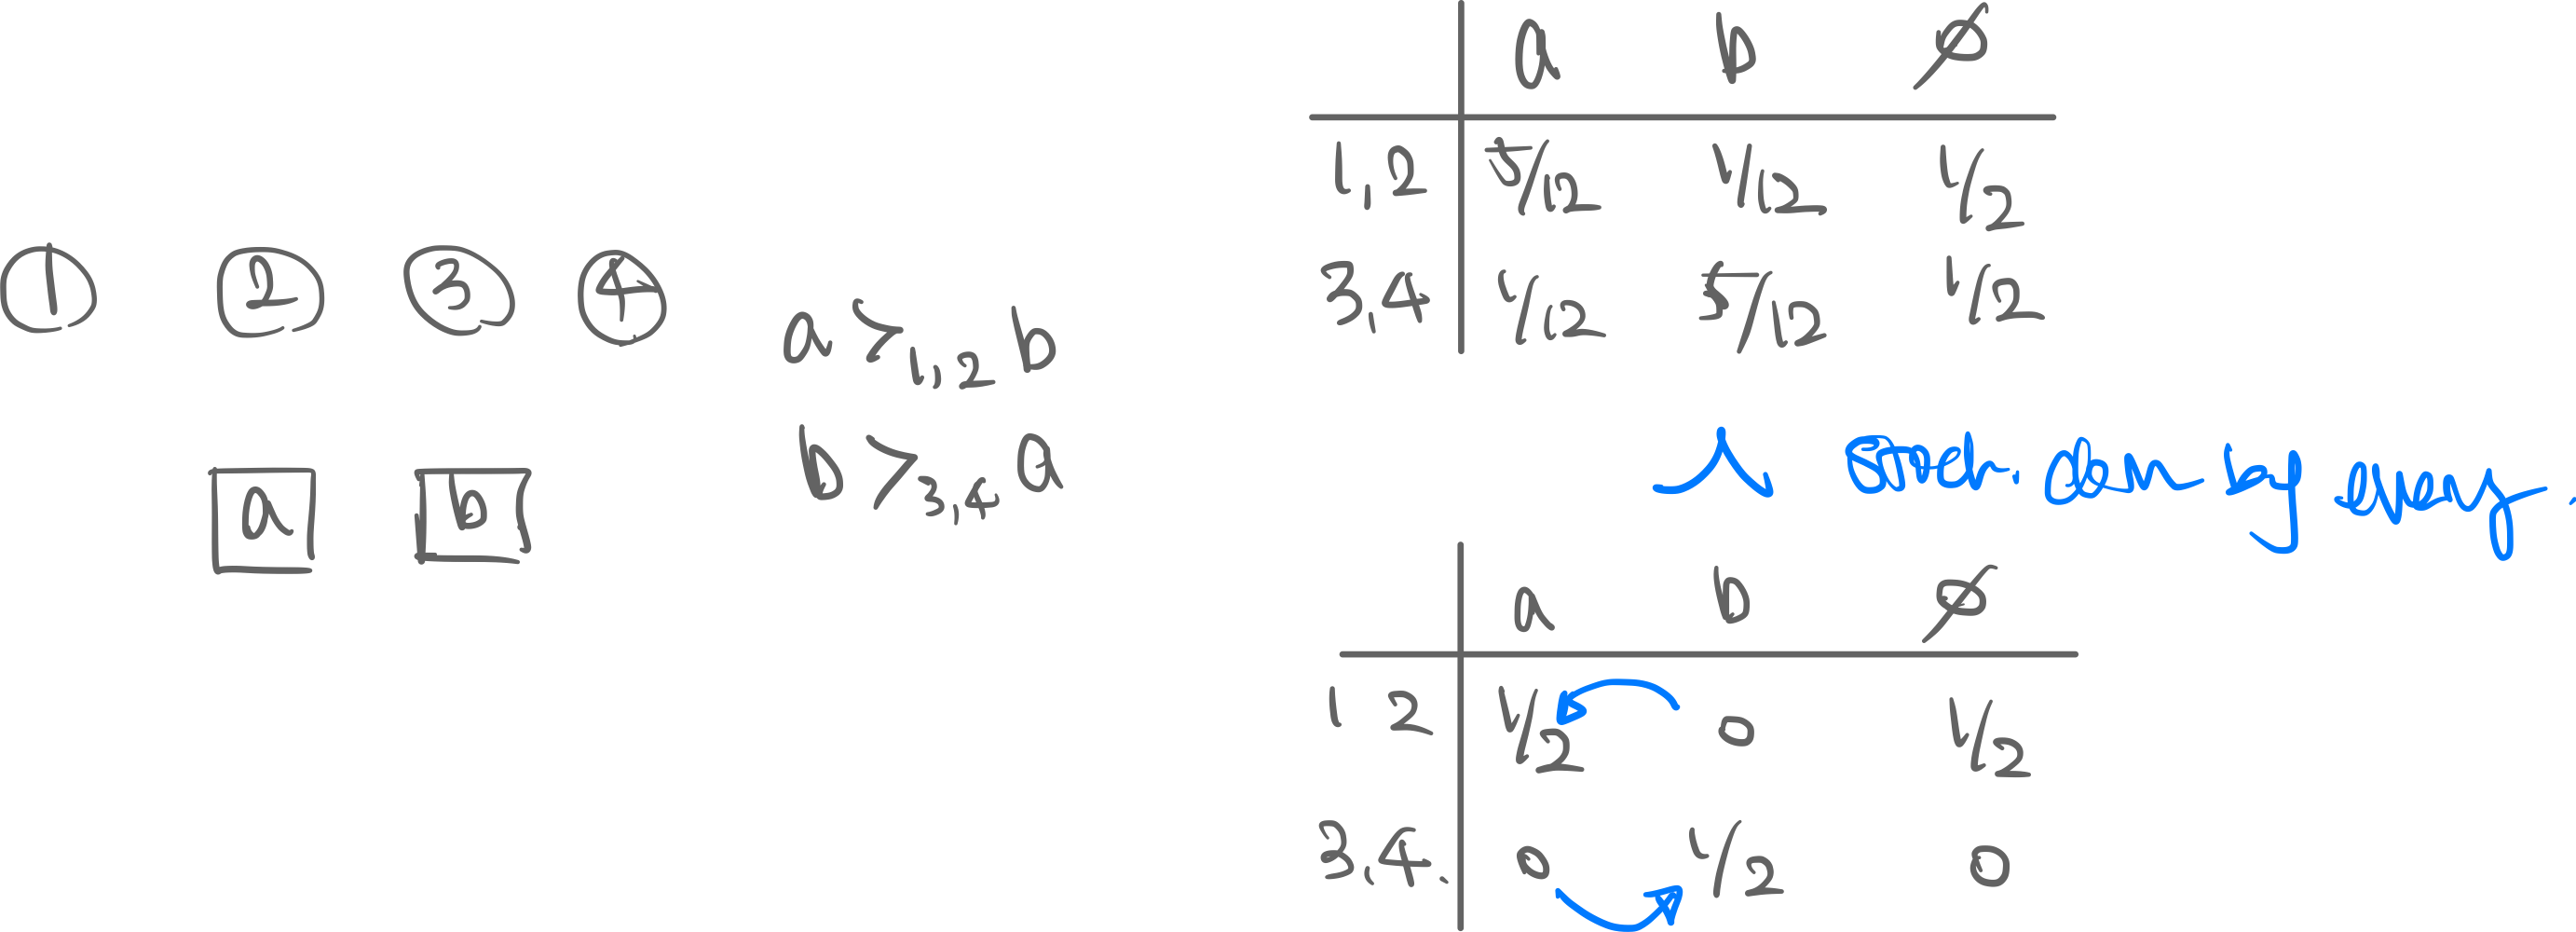 1 2 3 4
a b
a >1,2 b
b >3,4 a
a b ∅
1,2 5/12 1/12 1/2
3,4 1/12 5/12 1/2
⋏ stoch. dom by every.
a b ∅
1 2 1/2 0 1/2
3,4. 0 1/2 0